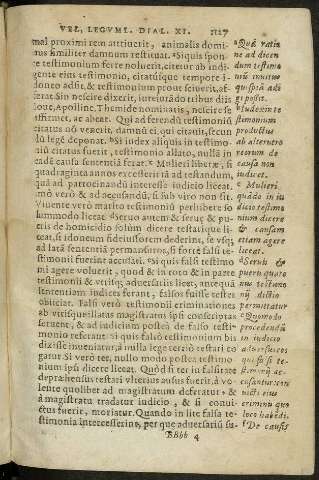 VEL, LEGVMI. DIAL. XI. 1127
mal proximi rem attriuerit, animalis domi-
nus similiter damnum restituat. Siquis spon-
te testimonium ferre noluerit, citetur ab indi-
gente eius testimonio, citatusque tempore i-
doneo adsit, & testimonium prout sciuerit, af-
ferat. Sin nescire dixerit, interiurādo tribus diis
Ioue, Apolline, Themide nominatis, nescire se
confirmet, ac abeat. Qui ad ferendū testimoniū
citatus nō venerit, damnū ei, qui citauit, secun-
dū legē deponat. Si iudex aliquis in testimo-
niū citatus fuerit, testimonio allato, nullā in
eadē causa sententiā ferat. Mulieri liberæ, si
quadraginta annos excesserit ad testandum,
quā ad patrocinandū interesse iudicio liceat,
mō verò & ad accusandū, si sub viro non sit.
Viuente verò marito testimoniū perhibere so-
lummodo liceat. Seruo autem & seruæ & pu-
eris de homicidio solùm dicere testatique li-
ceat, si idoneum fideiussorem dederint, se vsq;
ad latā sententiā permansuros, si fortè falsi te-
stimonii fuerint accusati. Si quis falsi testimo
nii agere voluerit, quod & in toto & in parte
testimonii & vtrisq; aduersariis licet, antequā
sententiam iudices ferant, falsos fuisse testes
obiiciat. Falsi verò testimonii criminationes
ab vtrisque illatas magistratus ipsi conscriptas
seruent, & ad iudicium posteà de falso testi-
monio referant: si quis falsò testimonium bis
dixisse inueniatur, à nulla lege tertiò testari co
gatur. Si verò ter, nullo modo posteà testimo
nium ipsi dicere liceat. Quòd si ter in falsitate
depræhensus testari vlterius ausus fuerit, à vo-
lente quolibet ad magistratum deferatur: &
à magistratu tradatur iudicio, & si conui-
ctus fuerit, moriatur. Quando in lite falsa te-
stimonia intercesserint, per quæ aduersariū su-
BBbb 4
Quā ratio
ne ad dicen
dum testimo
niū inuitus
quispiā adi
gi possit.
Iudex in te
stimonium
productus
ab alterutro
reorum de
causa non
iudicet.
Mulieri
quādo in iu
dicio testimo
nium dicere
& causam
etiam agere
liceat.
Seruis &
pueris quate
nus testimo
nij dictio
permittatur
Quomodo
procedendū
in iudicio
aduersarios
qui falsi te-
stimonij ac-
cusantur, con
uicti eius
criminis quo
loco habēdi.
De causis